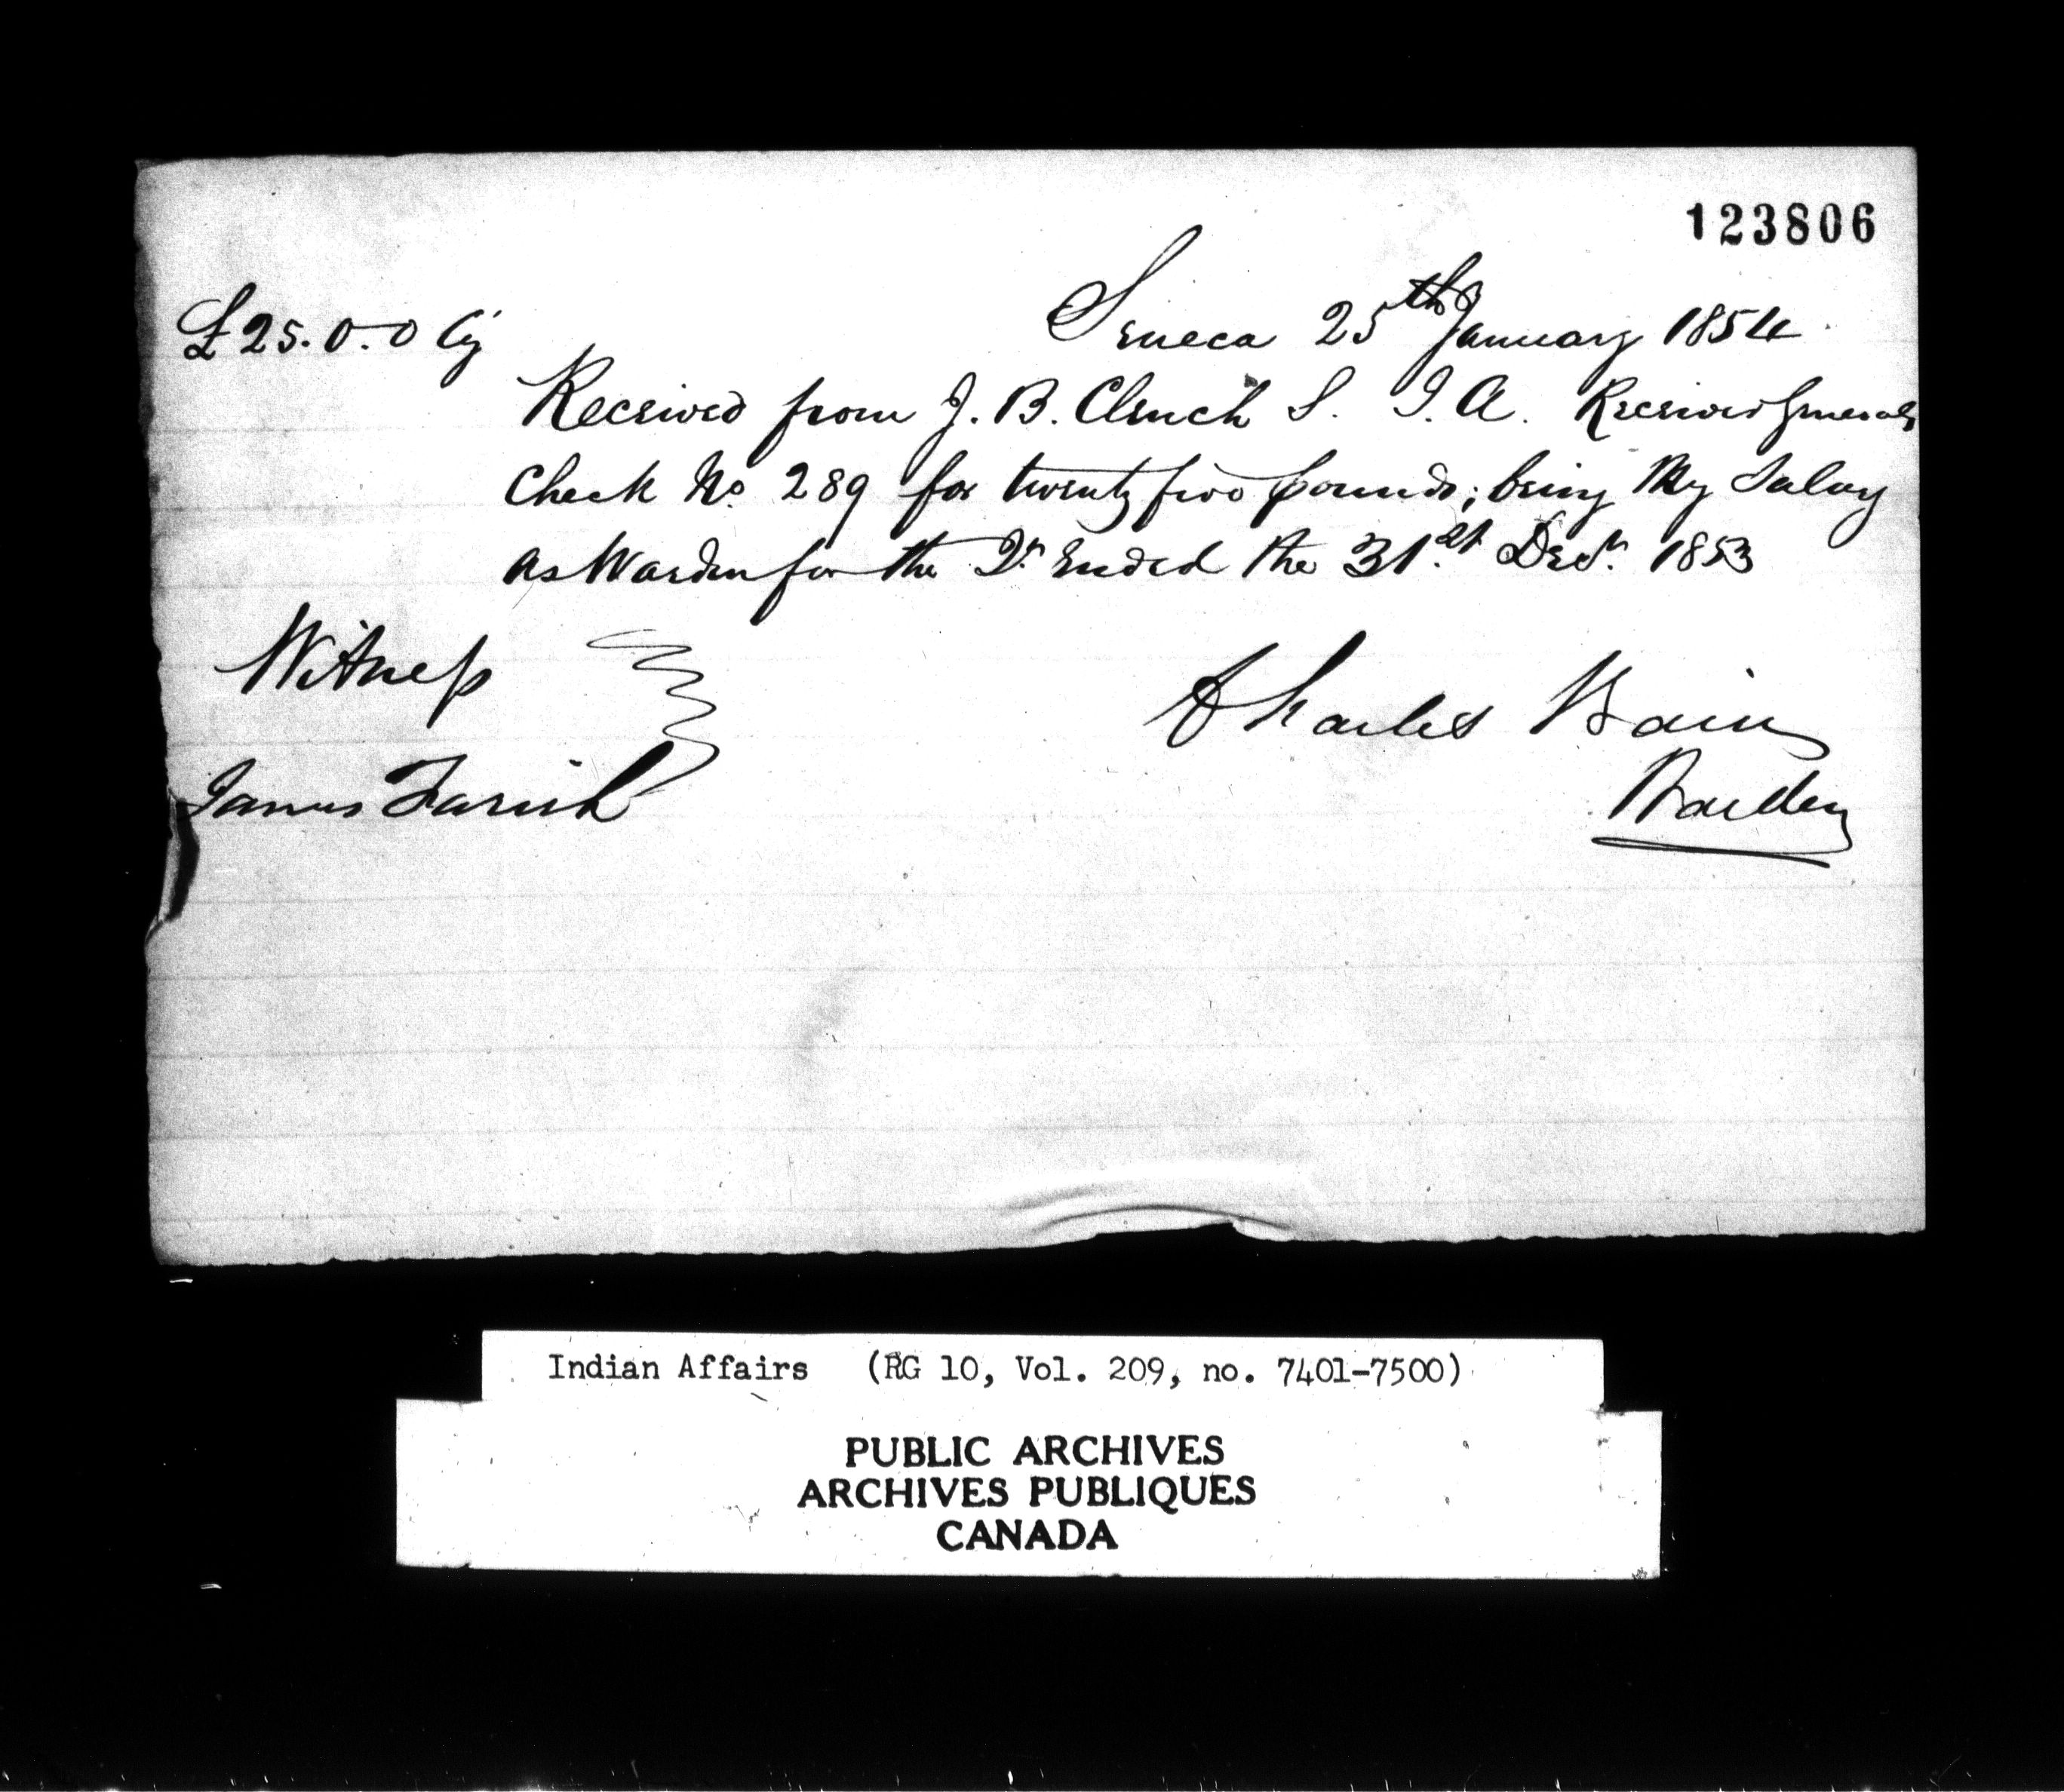 123806
£25.0.0 Cy
Seneca 25th January 1854
Received from J. B. Clench S. I. A. Receiver Generals
Check No. 289 for twenty five pounds; being My Salary
as Warden for the Qr. Ended the 31st Decr. 1853
Witness
Charles Bain
James Farish
Warden
Indian Affairs (RG 10, Vol. 209, no. 7401-7500)
PUBLIC ARCHIVES
ARCHIVES PUBLIQUES
CANADA